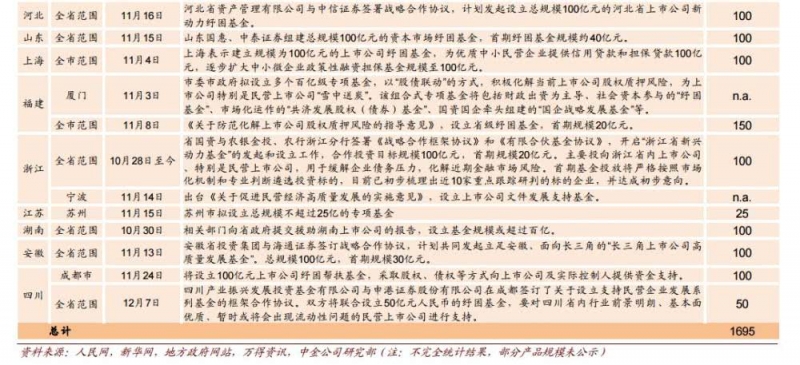 河北 全省范围 11月16日 河北省资产管理有限公司与中信证券签署战略合作协议，计划发起设立总规模100亿元的河北省上市公司新
动力纾困基金。 100
山东 全省范围 11月15日 山东国惠、中泰证券组建总规模100亿元的资本市场纾困基金，首期纾困基金规模约40亿元。 100
上海 全市范围 11月4日 上海表示建立规模为100亿元的上市公司纾困基金、为优质中小民营企业提供信用贷款和担保贷款100亿
元，逐步扩大中小微企业政策性融资担保基金规模至100亿元。 100
福建 厦门 11月3日 市委市政府拟设立多个百亿级专项基金，以“股债联动”的方式，积极化解当前上市公司股权质押风险，为上
市公司特别是民营上市公司“雪中送炭”。该组合式专项基金将包括财政出资为主、社会资本参与的“纾困
基金”、市场化运作的“共济发展股权（债券）基金”、国资国企牵头组建的“国企战略发展基金”等。 n.a.
全市范围 11月8日 《关于防范化解上市公司股权质押风险的指导意见》，设立省级纾困基金，首期规模20亿元。 150
浙江 全省范围 10月28日至今 省国资与农银金投、农行浙江分行签署《战略合作框架协议》和《有限合伙基金协议》，开启“浙江省新兴
动力基金”的发起和设立工作，合作投资目标规模100亿元，首期规模20亿元。主要投向浙江省内上市公司
、特别是民营上市公司，用于缓解企业债务压力，化解近期金融市场风险。首期基金投放将严格按照市场
化机制和专业判断遴选投资标的，目前已初步梳理出近10家重点跟踪研判的标的企业，并达成初步意向。 100
宁波 11月14日 出台《关于促进民营经济高质量发展的实施意见》，设立上市公司文件发展支持基金。 n.a.
江苏 苏州 11月15日 苏州市拟设立总规模不超过25亿的专项基金 25
湖南 全省范围 10月30日 相关部门向省政府提交援助湖南上市公司的报告，设立基金规模或超过百亿。 100
安徽 全省范围 11月13日 安徽省投资集团与海通证券签订战略合作协议，计划共同发起立足安徽、面向长三角的“长三角上市公司高
质量发展基金”。总规模100亿元，首期规模30亿元。 100
四川 成都市 11月24日 将设立100亿元上市公司纾困帮扶基金，采取股权、债权等方式向上市公司及实际控制人提供资金支持。 100
全省范围 12月7日 四川产业振兴发展投资基金有限公司与申港证券股份有限公司在成都签订了关于设立支持民营企业发展系
列基金的框架合作协议。双方将联合设立50亿元人民币的纾困基金，要对四川省内行业前景明朗、基本面
优质、暂时或将会出现流动性问题的民营上市公司进行支持。 50
总计 1695
资料来源：人民网，新华网，地方政府网站，万得资讯，中金公司研究部（注：不完全统计结果，部分产品规模未公示）